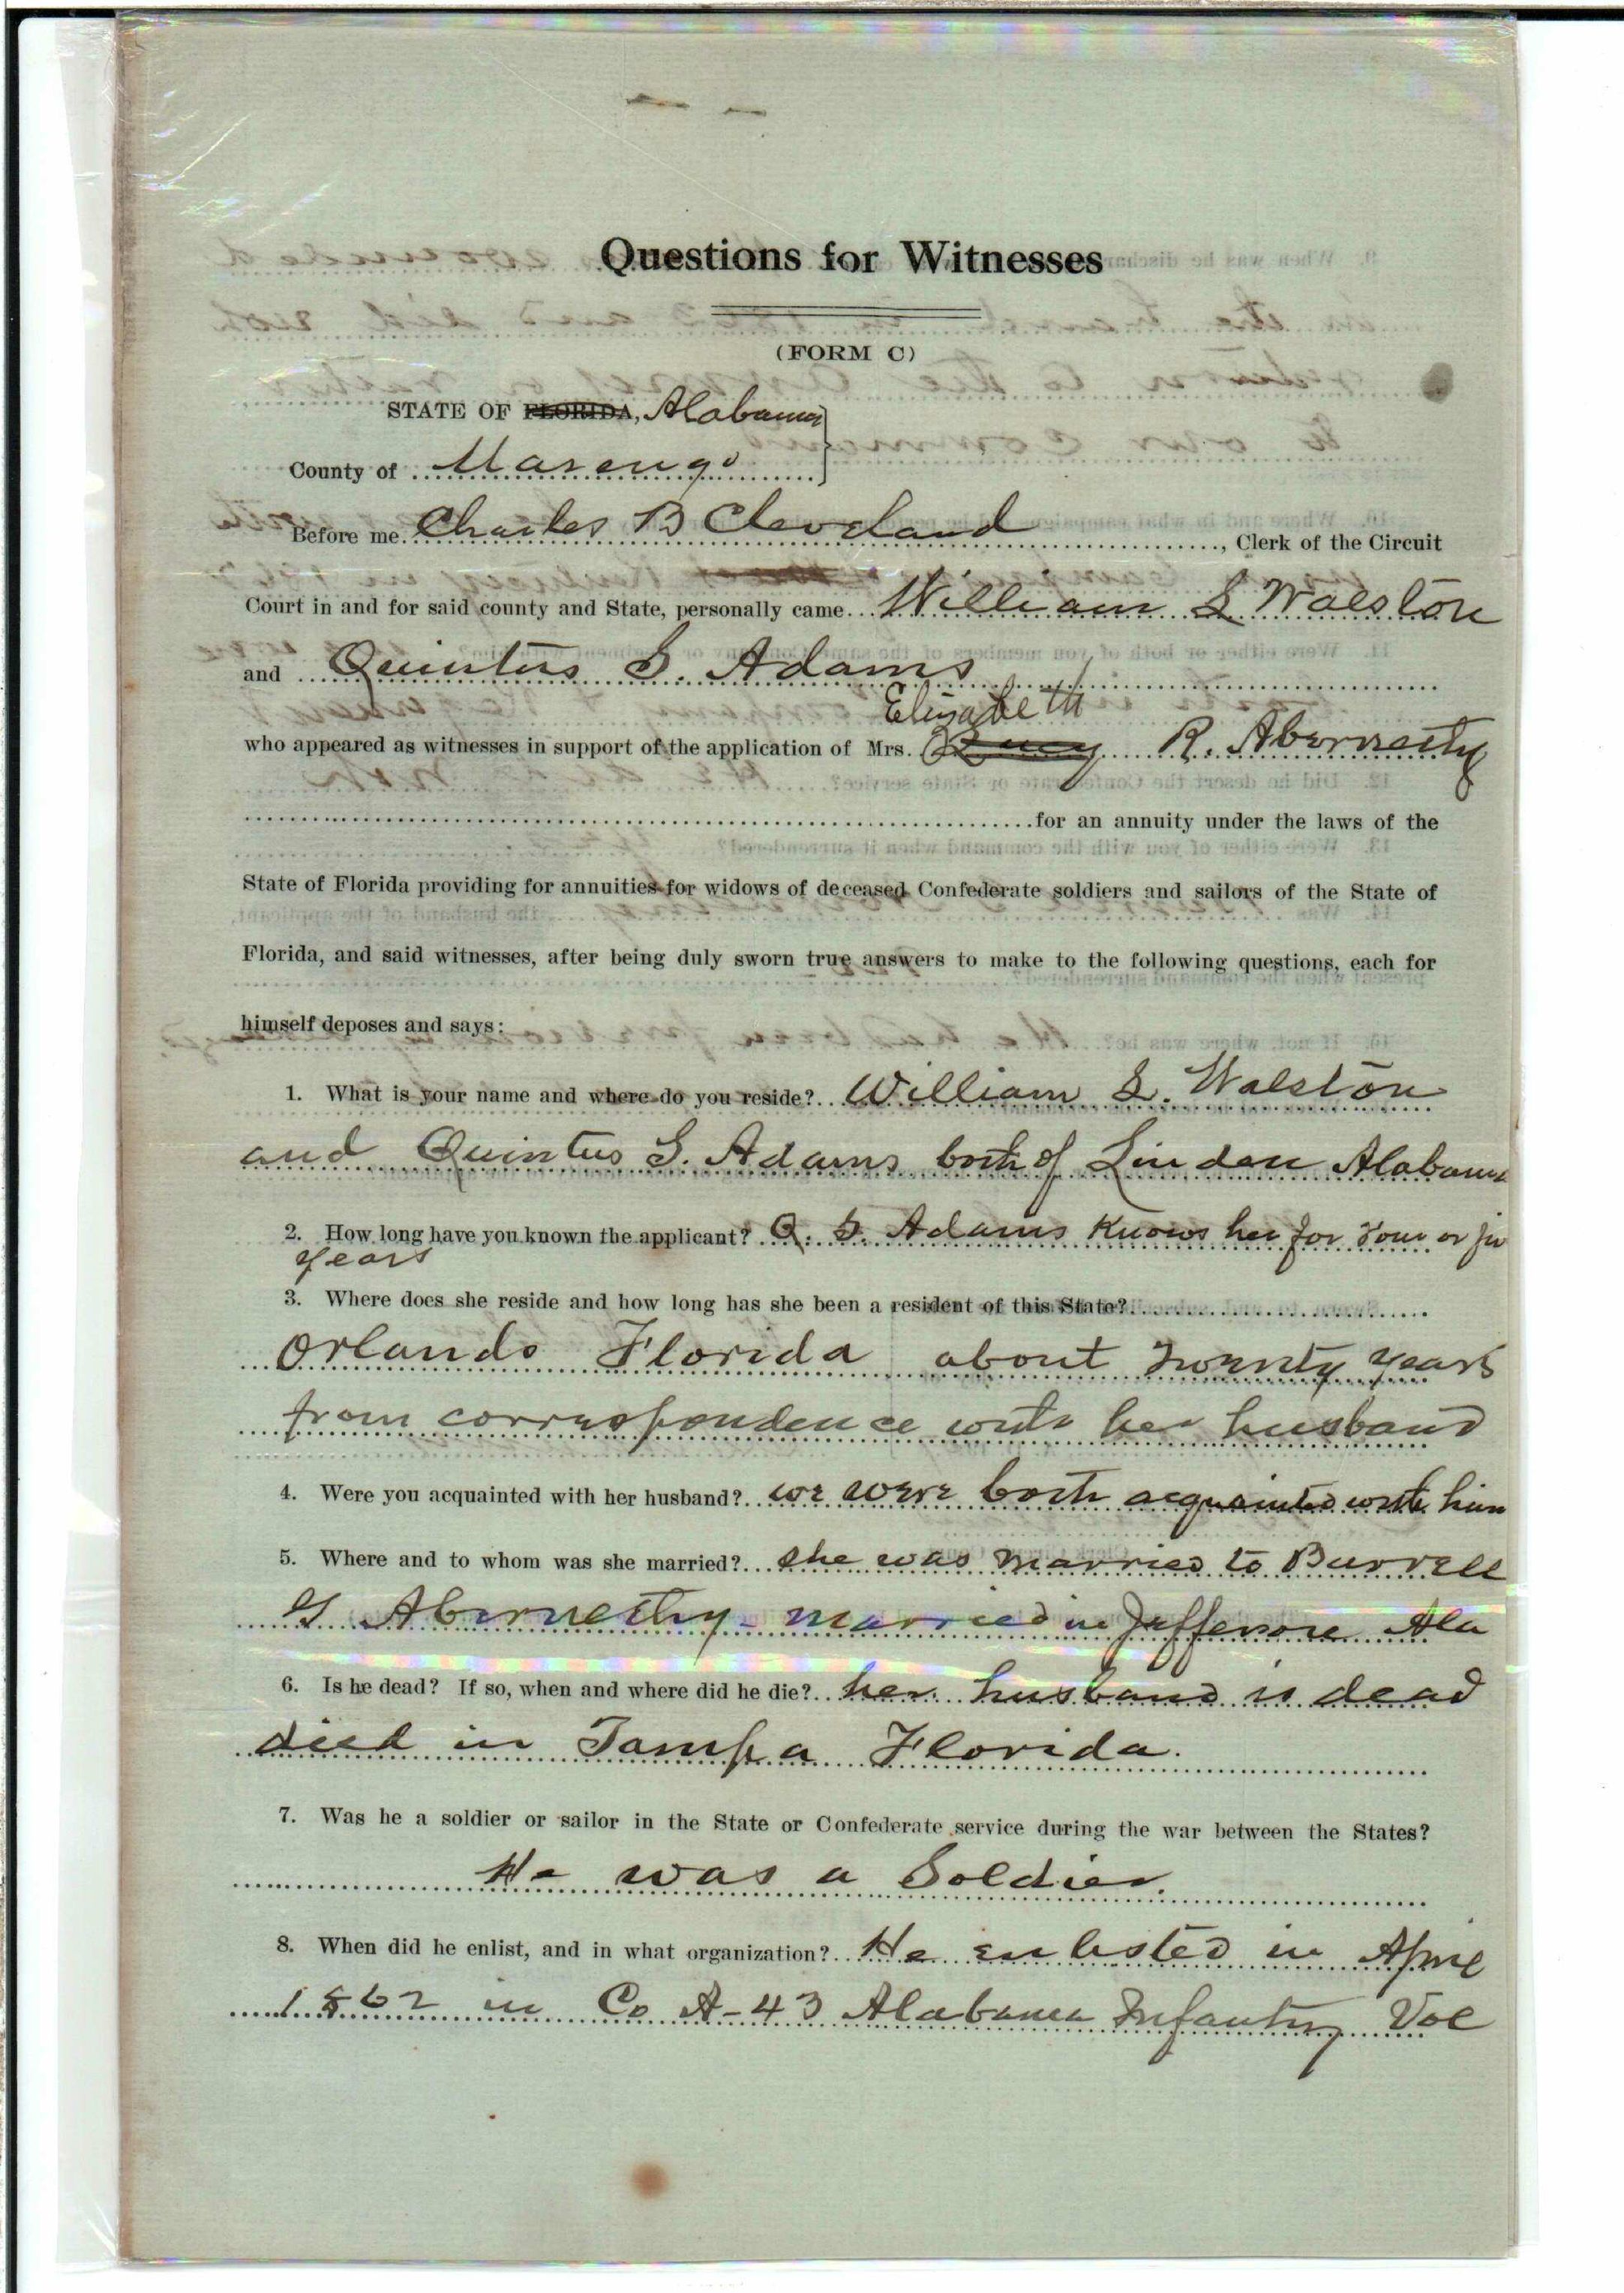 Questions for Witnesses
(FORM C)
STATE OF FLORIDA, Alabama
County of Marengo
Before me Charles B Cleveland, Clerk of the Circuit
Court in and for said county and State, personally came William L Walston
and Quintus G. Adams
Elizabeth
who appeared as witnesses in support of the application of Mrs. R. Abernethy
for an annuity under the laws of the
State of Florida providing for annuities for widows of deceased Confederate soldiers and sailors of the State of
Florida, and said witnesses, after being duly sworn true answers to make to the following questions, each for
himself deposes and says:
1. What is your name and where do you reside? William L. Walston
and Quintus G. Adams both of Linden Alabama
2. How long have you known the applicant? Q. G. Adams Knows her for four or
years
3. Where does she reside and how long has she been a resident of this State?
Orlando Florida about Twenty years
from correspondence with her husband
4. Were you acquainted with her husband? we were both acquainted with him
5. Where and to whom was she married? she was married to Burrell
G Abernethy married in Jefferson Ala
6. Is he dead? If so, when and where did he die? her husband is dead
died in Tampa Florida.
7. Was he a soldier or sailor in the State or Confederate service during the war between the States?
He was a Soldier.
8. When did he enlist, and in what organization? He enlisted in April
1862 in Co A-43 Alabama Infantry Vol